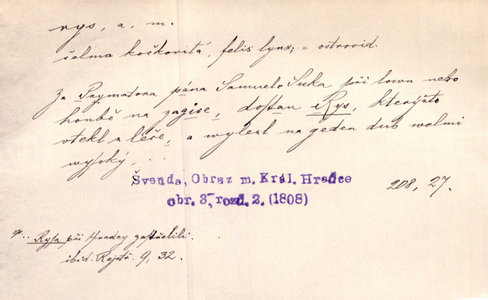 rys, a, m.
šelma kočkovitá, felis lynx, = ostrovid.
Za Prymatora pána Samuele Suka při lowu nebo
honbě na zagíce, dostan Rys, kterýžto
utekl z léče, a wylezl na geden dub welmi
wysoký, . . .
Švenda, Obraz m. Král. Hradce 208, 27.
obr. 3, rozd. 2. (1808)
Rysa při Hradcy zastřelili.
ibid. 9, 32.